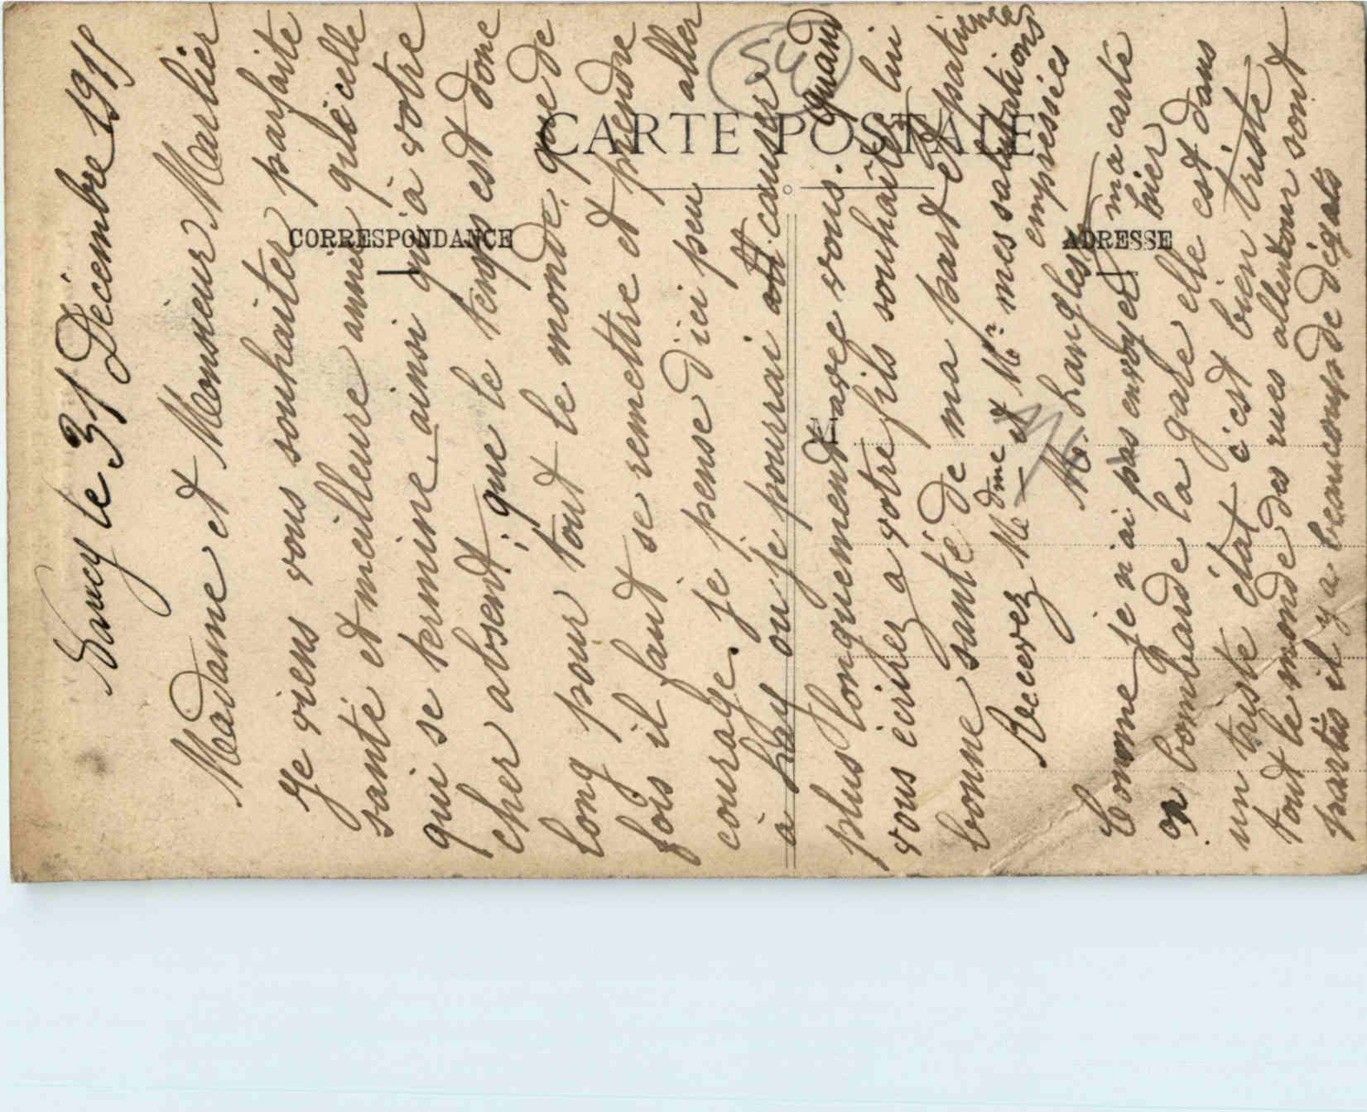 CARTE POSTALE
CORRESPONDANCE
ADRESSE
54
Nancy le 31 Décembre 1917
Madame et Monsieur Marlier
Je viens vous souhaiter parfaite
santé et meilleure année que celle
qui se termine ainsi qu'à votre
cher absent, que le temps est donc
long pour tout le monde, que de
fois il faut se remettre et prendre
courage. je pense d'ici peu aller
à où je pourrai causer
plus longuement avec vous. quand
vous écirez a votre fils souhaitez lui
bonne santé de ma part et patience
Recevez Mdme et Mr mes salutations
empressées
M. Langlest
Comme je n'ai pas envoyer ma carte
hier
on bombarde la gare elle est dans
un triste état c'est bien triste
tout le monde des rues allentour sont
partis il y a beaucoup de dégats